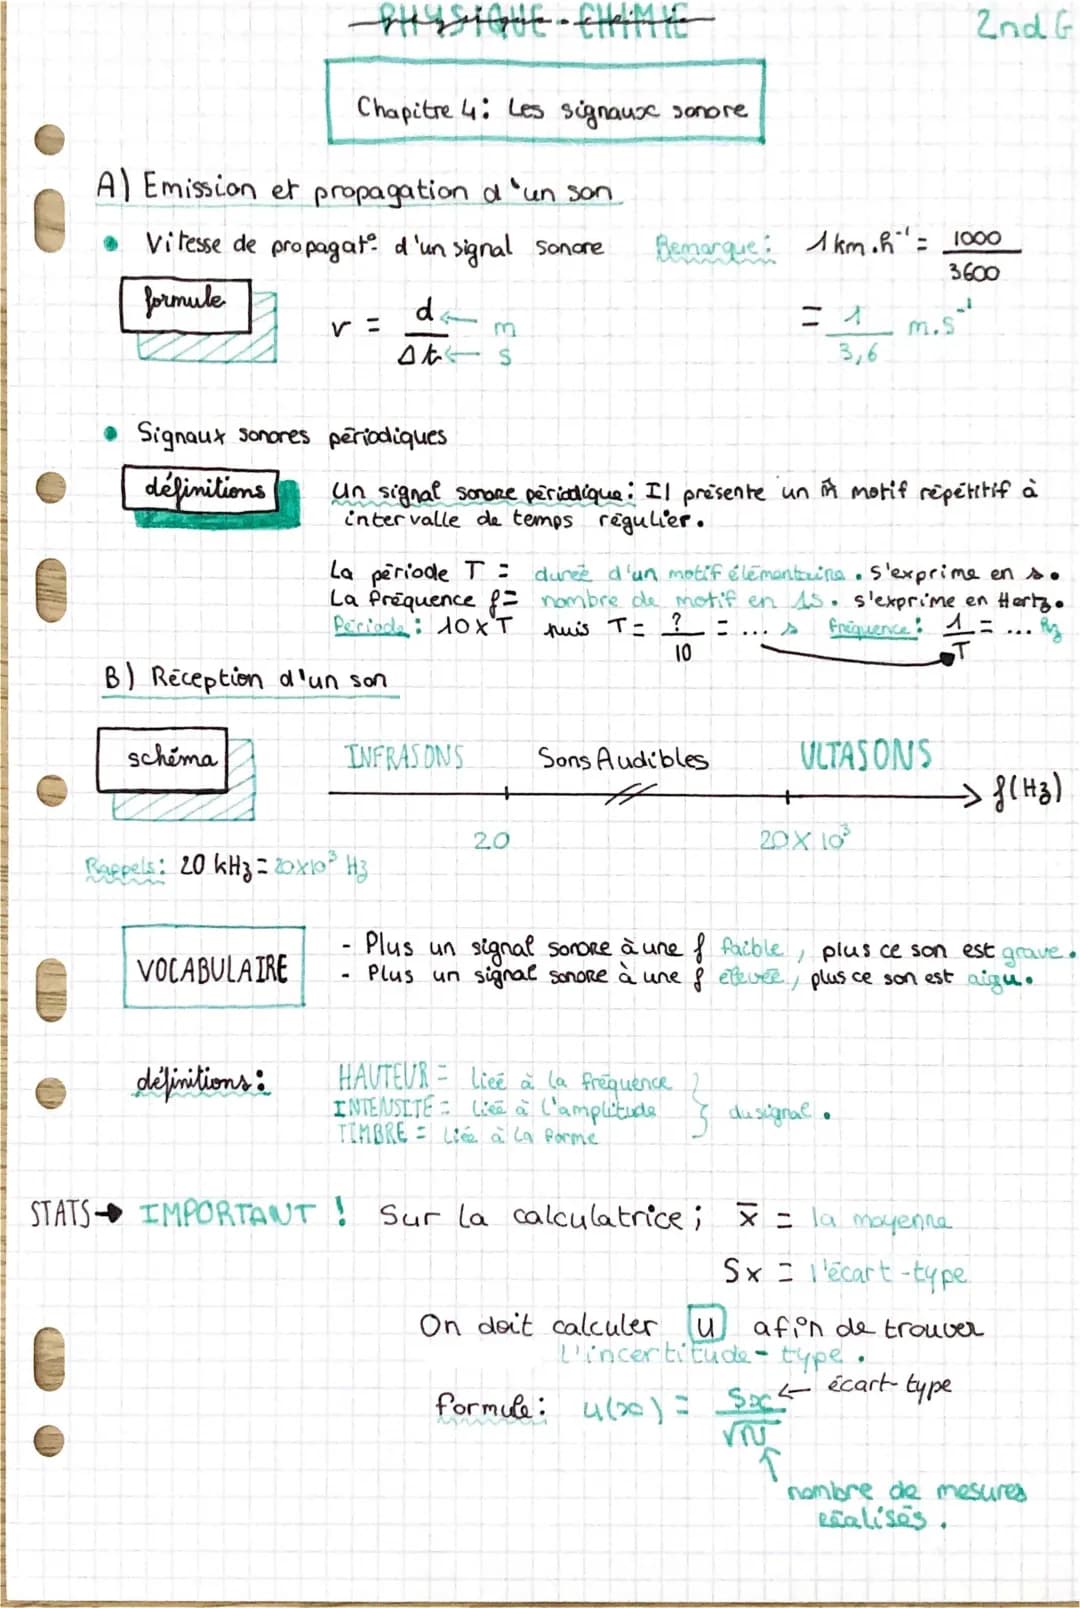 PHYSIQUE-CHIMIE
2nd G
Chapitre 4: Les signaux sonore
A) Emission et propagation d'un son
• Vitesse de propagat° d'un signal sonore
Remarque: 1km.h⁻¹ = 1000/3600
= 1/3,6 m.s⁻¹
formule
v = d/Δt ← m ← s
• Signaux sonores périodiques
définitions
Un signal sonore périodique: Il présente un m̂ motif répétitif à
intervalle de temps régulier.
La période T = durée d'un motif élémentaire. s'exprime en s.
La fréquence f = nombre de motif en 1s. s'exprime en Hertz.
Période: 10xT puis T = ?/10 = ... s fréquence: 1/T = ... Hz
B) Réception d'un son
schéma
INFRASONS Sons Audibles ULTASONS
f(Hz)
20 20X10³
Rappels: 20 kHz = 20x10³ Hz
VOCABULAIRE
- Plus un signal sonore à une f faible, plus ce son est grave.
- Plus un signal sonore à une f élevée, plus ce son est aigu.
définitions:
HAUTEUR = lieé à la fréquence
INTENSITÉ = liéé à l'amplitude } du signal.
TIMBRE = Liée à la forme
STATS → IMPORTANT ! Sur la calculatrice; x̄ = la moyenne
Sx = l'écart-type
On doit calculer u afin de trouver
l'incertitude-type.
formule: u(x) = Sx/√N ← écart-type
↑
nombre de mesures
réalisés.